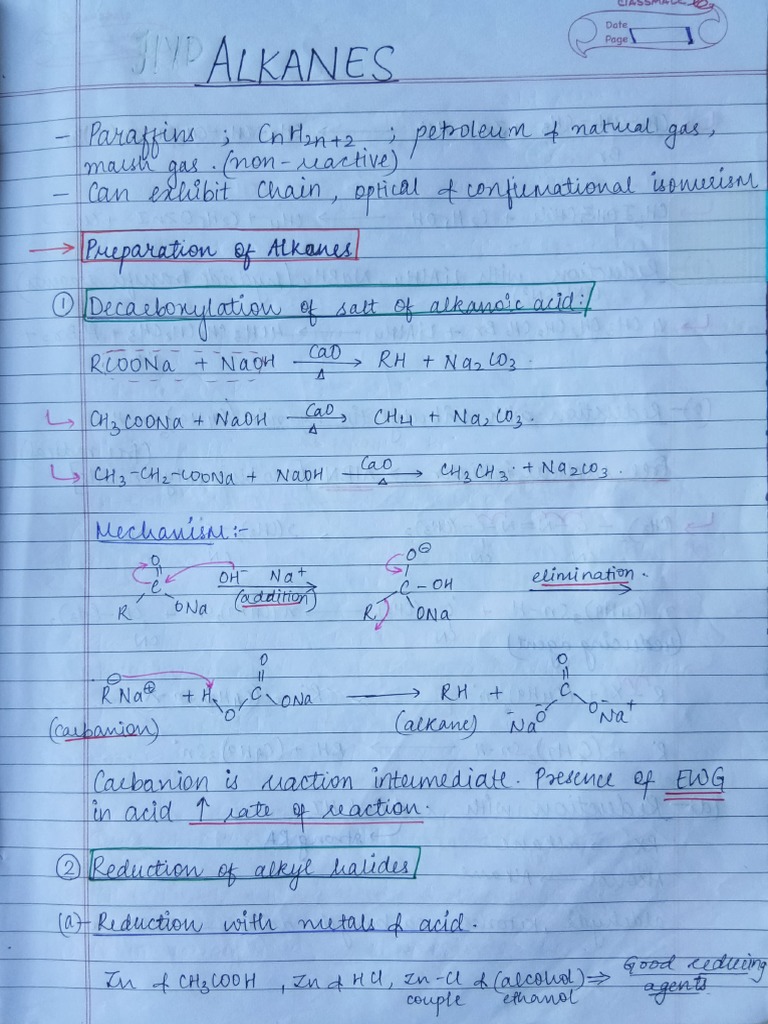 CLASSMATE
Date
Page
ALKANES
- Paraffins ; CnH2n+2 ; petroleum & natural gas,
marsh gas. (non-reactive)
- Can exhibit Chain, optical & confirmational isomerism
→ Preparation of Alkanes
① Decarboxylation of salt of alkanoic acid:
RCOONa + NaOH CaO Δ → RH + Na2CO3.
↳ CH3COONa + NaOH CaO Δ → CH4 + Na2CO3.
↳ CH3-CH2-COONa + NaOH CaO Δ → CH3CH3. + Na2CO3.
Mechanism:-
O O⊖
C OH⁻ Na⁺ C - OH elimination.
R ONa (addition) R ONa
O O
R⊖ Na⊕ + H O C ONa → RH + C
(carbanion) (alkane) Na⁺ ⁻O O⁻ Na⁺
Carbanion is reaction intermediate. Presence of EWG
in acid ↑ rate of reaction.
② Reduction of alkyl halides
(a)- Reduction with metals & acid.
Zn & CH3COOH, Zn & HCl, Zn-Cl & (alcohol) ⇒ Good reducing
couple ethanol agents